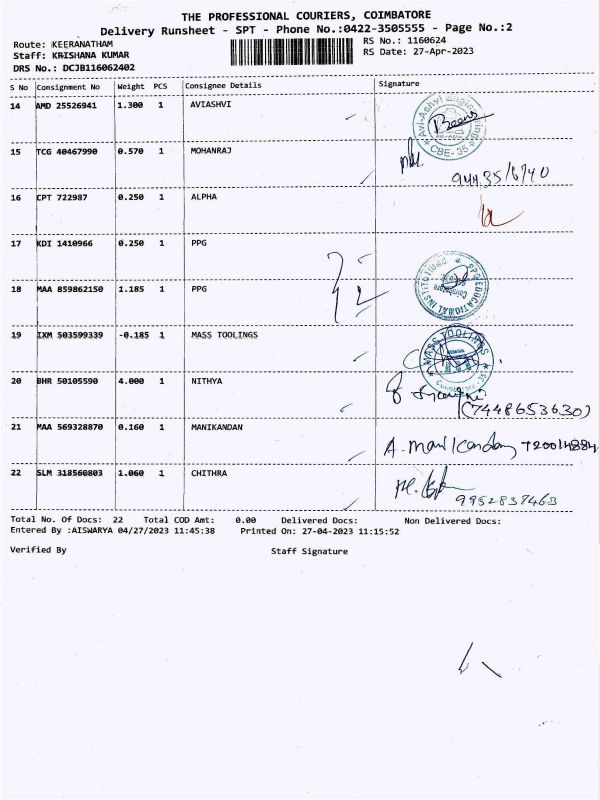 THE PROFESSIONAL COURIERS, COIMBATORE
Delivery Runsheet - SPT - Phone No.:0422-3505555 - Page No.:2
Route: KEERANATHAM RS No.: 1160624
Staff: KRISHANA KUMAR RS Date: 27-Apr-2023
DRS No.: DCJB116062402
S No Consignment No Weight PCS Consignee Details Signature
14 AMD 25526941 1.300 1 AVIASHVI
CBE- 35
15 TCG 40467990 0.570 1 MOHANRAJ
16 CPT 722987 0.250 1 ALPHA
17 KDI 1410966 0.250 1 PPG
18 MAA 859862150 1.185 1 PPG
PPG EDUCATIONAL INSTITUTIONS
19 IXM 503599339 -0.185 1 MASS TOOLINGS
MASS TOOLINGS
20 BHR 50105590 4.000 1 NITHYA
(7448653630)
21 MAA 569328870 0.160 1 MANIKANDAN
A. Manikandan
22 SLM 318560803 1.060 1 CHITHRA
9952837463
Total No. Of Docs: 22 Total COD Amt: 0.00 Delivered Docs: Non Delivered Docs:
Entered By :AISWARYA 04/27/2023 11:45:38 Printed On: 27-04-2023 11:15:52
Verified By Staff Signature